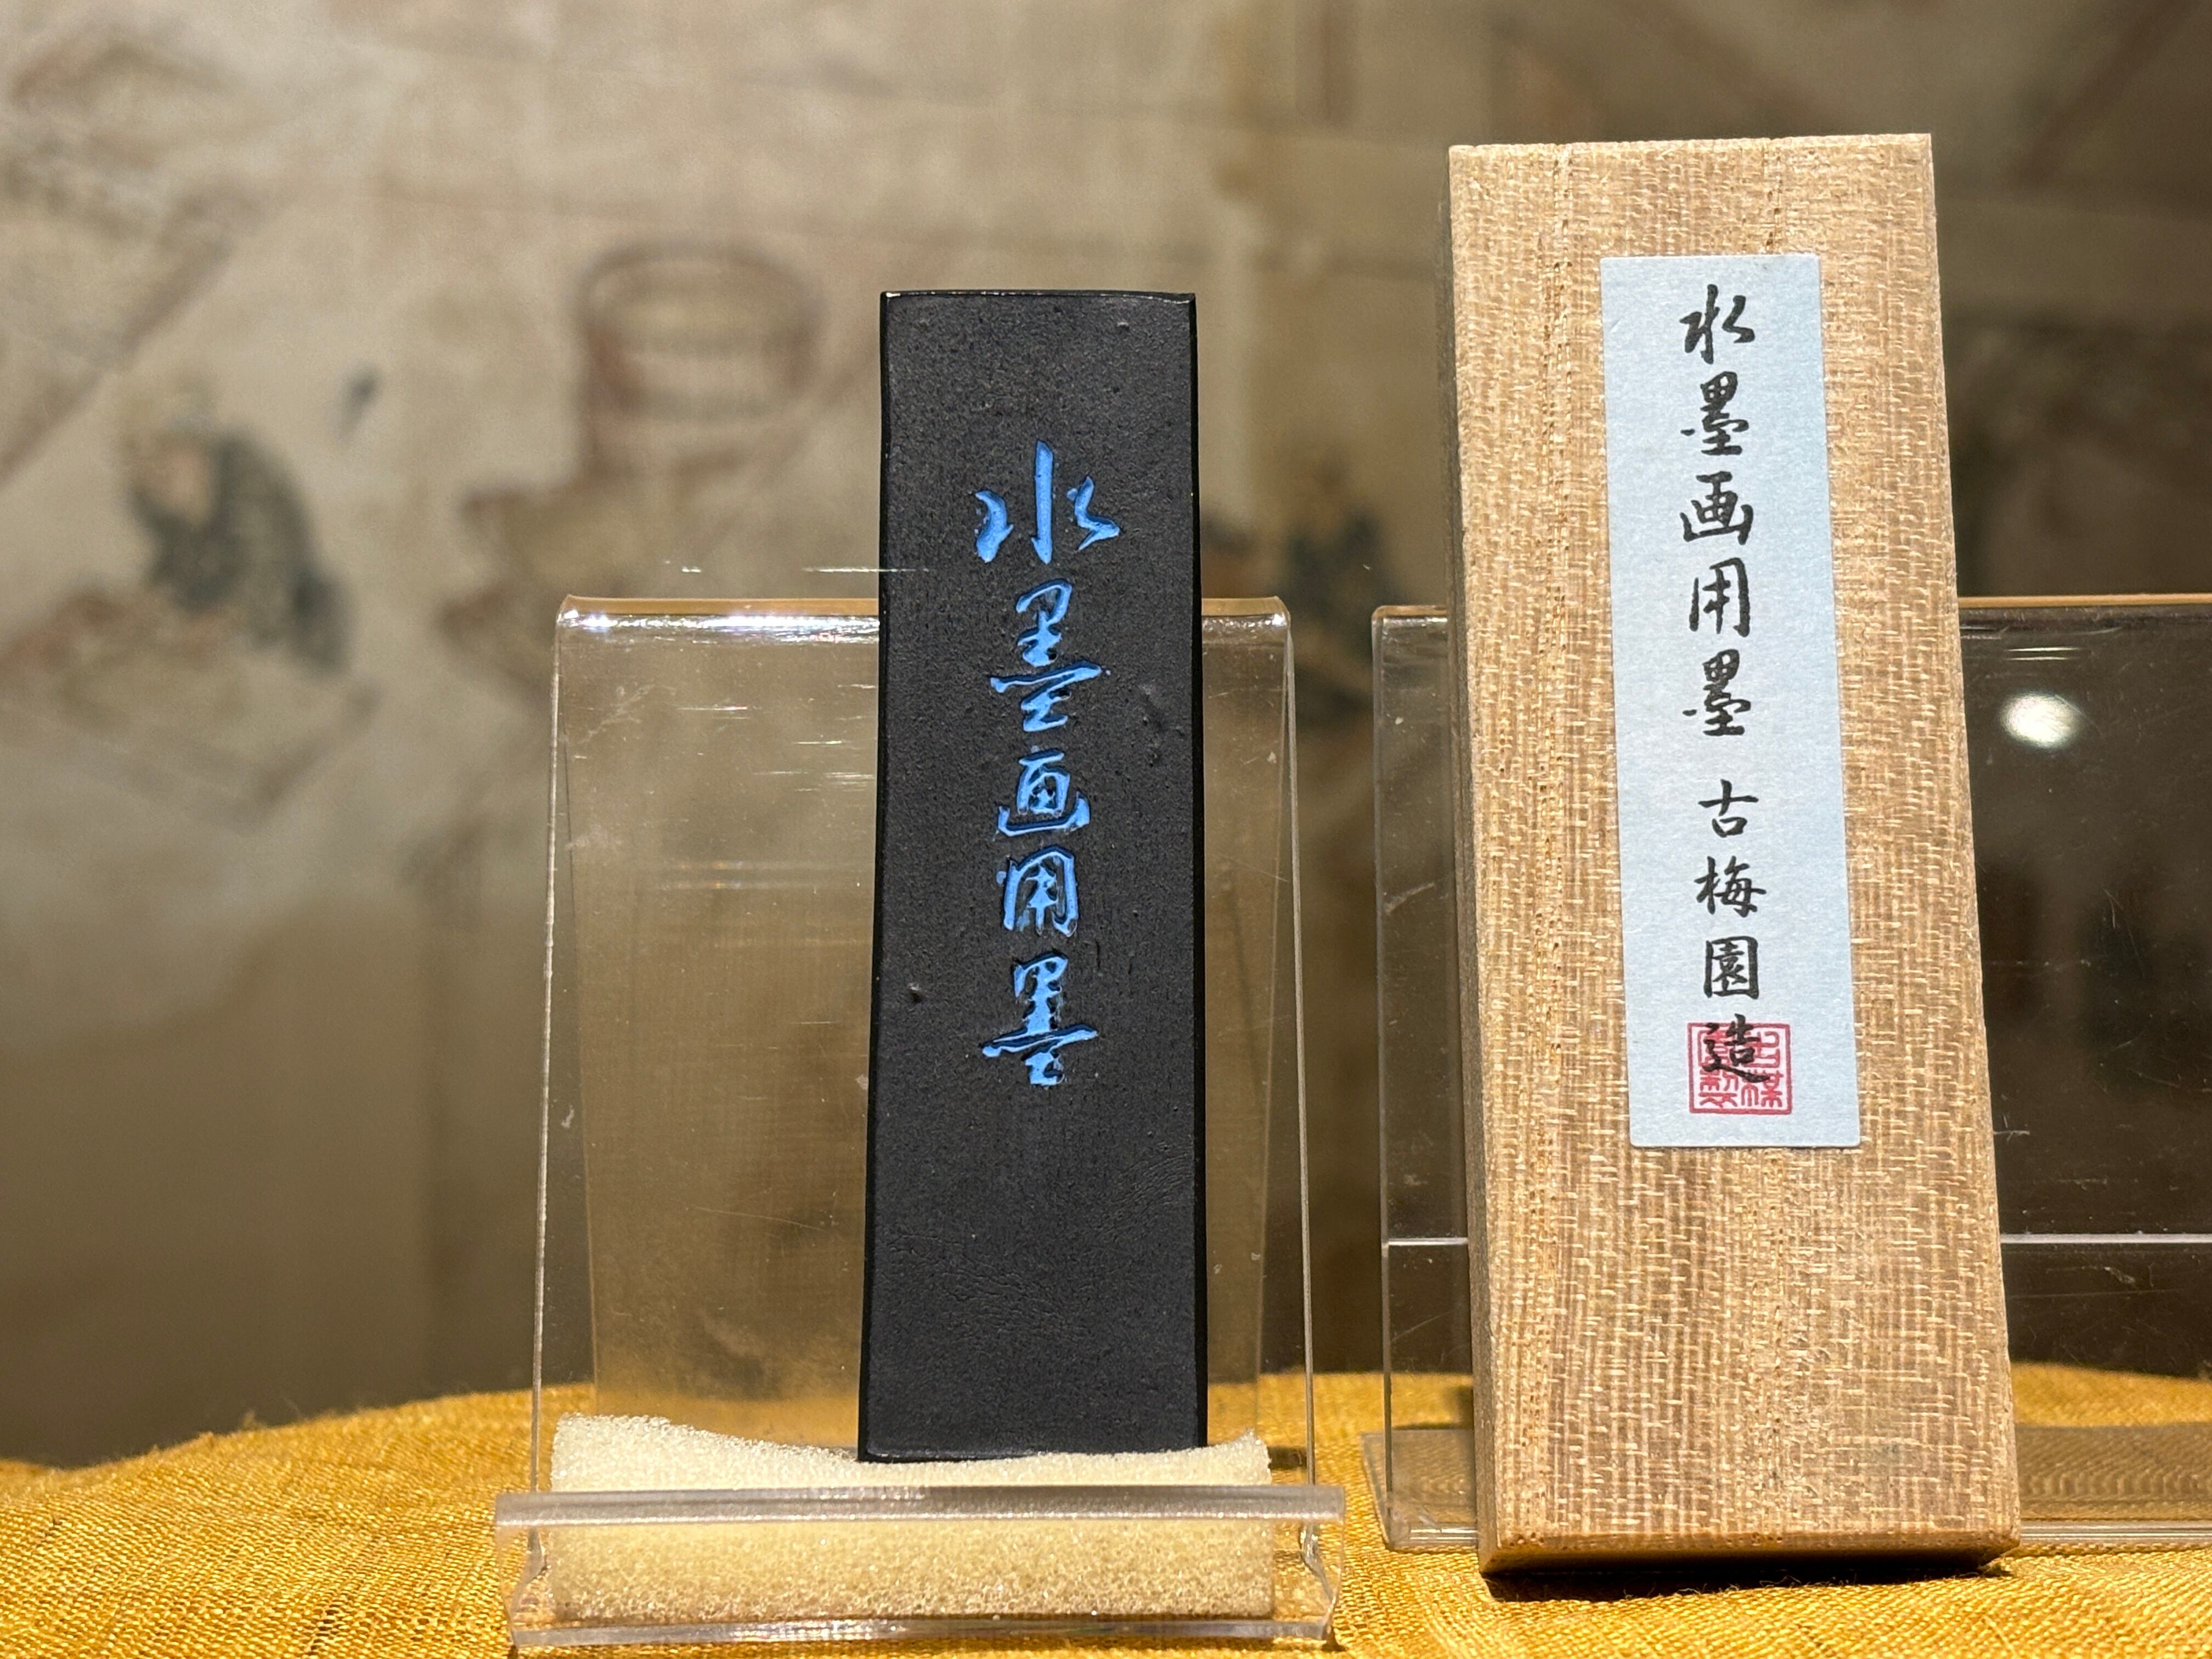 水墨画用墨
水墨画用墨 古梅園造